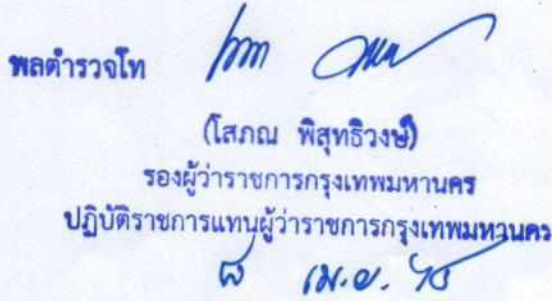 พลตำรวจโท
(โสภณ พิสุทธิวงษ์)
รองผู้ว่าราชการกรุงเทพมหานคร
ปฏิบัติราชการแทนผู้ว่าราชการกรุงเทพมหานคร
๘ เม.ย.